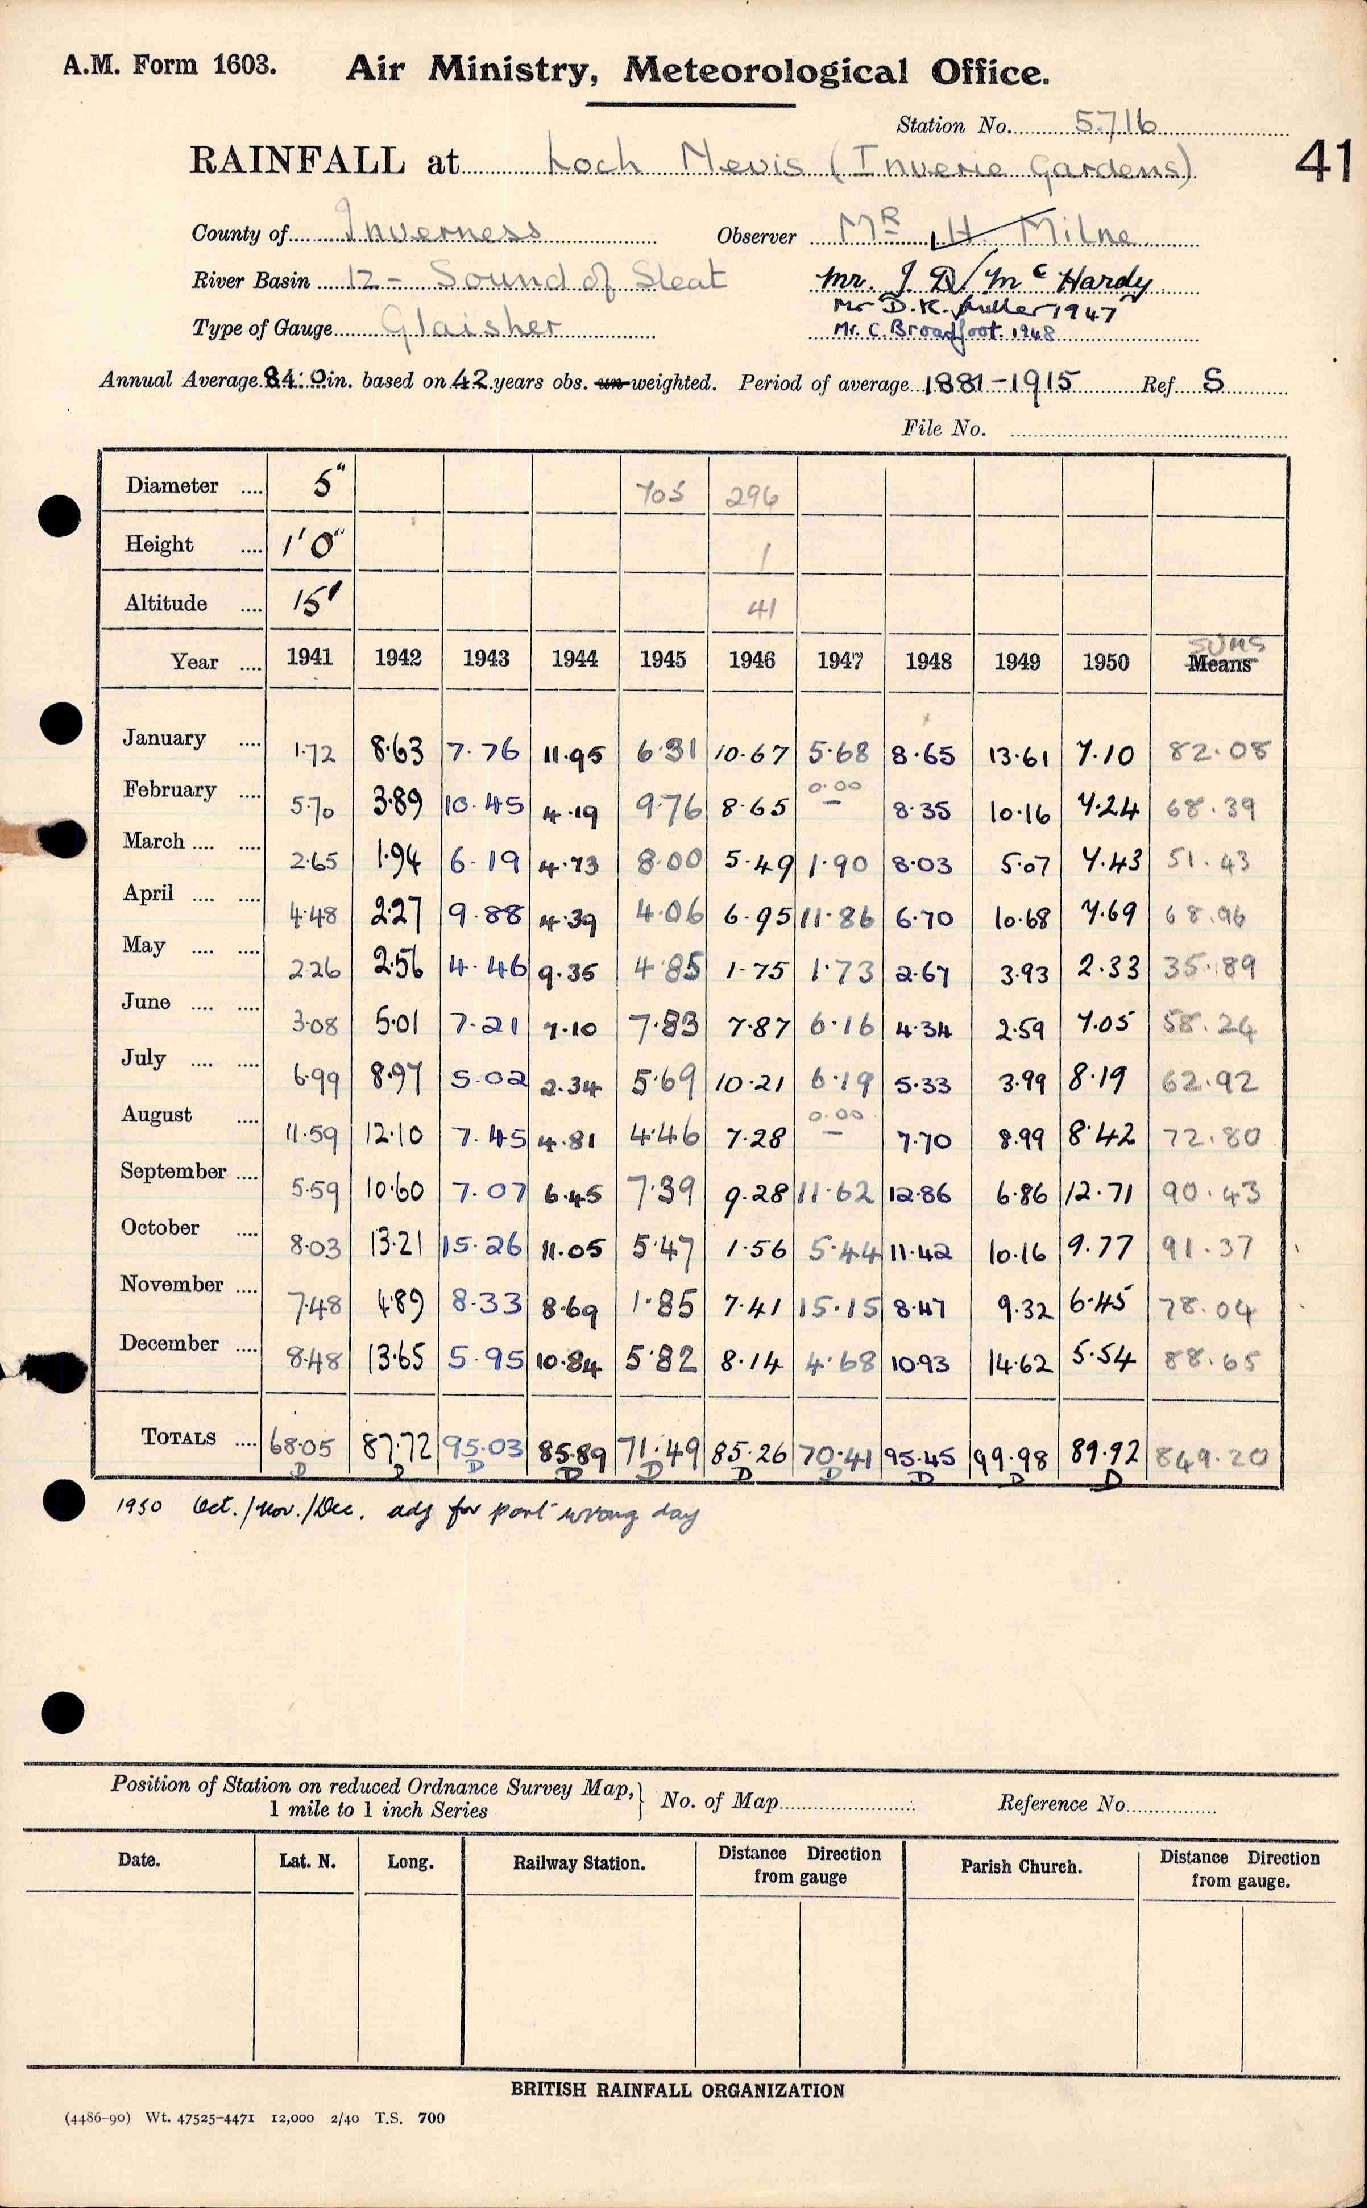 A.M. Form 1603. Air Ministry, Meteorological Office.
Station No. 5716
RAINFALL at Loch Nevis (Inverie Gardens) 41
County of Inverness Observer MR H. Milne
River Basin 12 - Sound of Sleat Mr. J D McHardy
Mr D.K. Fuller 1947
Type of Gauge Glaisher Mr. C. Broadfoot 1948
Annual Average 84.0 in. based on 42 years obs. un-weighted. Period of average 1881-1915 Ref S
File No.
Diameter 5" 705 296
Height 1'0" 1
Altitude 15' 41
Year 1941 1942 1943 1944 1945 1946 1947 1948 1949 1950 Means SUMS
January 1.72 8.63 7.76 11.95 6.31 10.67 5.68 8.65 13.61 7.10 82.08
February 5.70 3.89 10.45 4.19 9.76 8.65 0.00 – 8.35 10.16 7.24 68.39
March 2.65 1.94 6.19 4.73 8.00 5.49 1.90 8.03 5.07 7.43 51.43
April 4.48 2.27 9.88 4.39 4.06 6.95 11.86 6.70 10.68 7.69 68.96
May 2.26 2.56 4.46 9.35 4.85 1.75 1.73 2.67 3.93 2.33 35.89
June 3.08 5.01 7.21 7.10 7.83 7.87 6.16 4.34 2.59 7.05 58.24
July 6.99 8.97 5.02 2.34 5.69 10.21 6.19 5.33 3.99 8.19 62.92
August 11.59 12.10 7.45 4.81 4.46 7.28 0.00 – 7.70 8.99 8.42 72.80
September 5.59 10.60 7.07 6.45 7.39 9.28 11.62 12.86 6.86 12.71 90.43
October 8.03 13.21 15.26 11.05 5.47 1.56 5.44 11.42 10.16 9.77 91.37
November 7.48 4.89 8.33 8.69 1.85 7.41 15.15 8.47 9.32 6.45 78.04
December 8.48 13.65 5.95 10.84 5.82 8.14 4.68 10.93 14.62 5.54 88.65
TOTALS 68.05 87.72 95.03 85.89 71.49 85.26 70.41 95.45 99.98 89.92 849.20
D D D D D D D D D D
1950 Oct./Nov./Dec. adj for part wrong day
Position of Station on reduced Ordnance Survey Map, 1 mile to 1 inch Series } No. of Map Reference No.
Date. Lat. N. Long. Railway Station. Distance Direction from gauge Parish Church. Distance Direction from gauge.
BRITISH RAINFALL ORGANIZATION
(4486-90) Wt. 47525-4471 12,000 2/40 T.S. 700